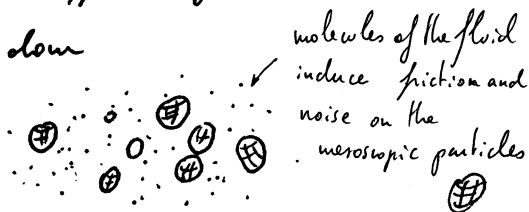 down
molecules of the fluid
induce friction and
noise on the
mesoscopic particles